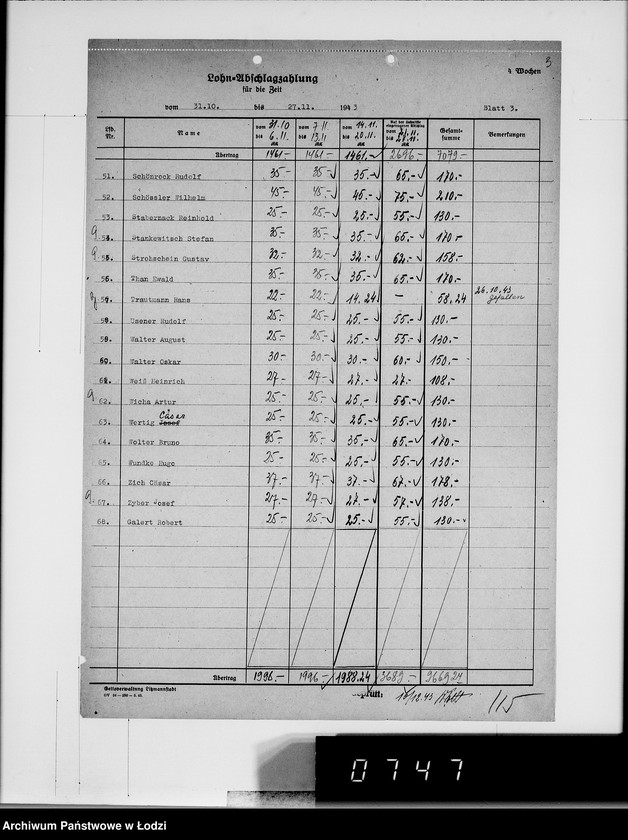 3
4 Wochen
Lohn-Abschlagzahlung
für die Zeit
vom 31.10. bis 27.11. 1943 Blatt 3.
Lfd. Nr. Name vom 31.10 bis 6.11. vom 7.11 bis 13.11 vom 14.11. bis 20.11. vom 21.11. bis 27.11. Gesamt-summe Bemerkungen
Übertrag 1461.- 1461.- 1461.- 2696.- 7079.-
51. Schönrock Rudolf 35.- 35.- 35.- 65.- 170.-
52. Schüssler Wilhelm 45.- 45.- 45.- 75.- 210.-
53. Stabernack Reinhold 25.- 25.- 25.- 55.- 130.-
54. Stankewitsch Stefan 35.- 35.- 35.- 65.- 170.-
55. Strohschein Gustav 32.- 32.- 32.- 62.- 158.-
56. Than Ewald 35.- 35.- 35.- 65.- 170.-
57. Trautmann Hans 22.- 22.- 14.24 - 58,24 26.10.43 gefallen
58. Usener Rudolf 25.- 25.- 25.- 55.- 130.-
59. Walter August 25.- 25.- 25.- 55.- 130.-
60. Walter Oskar 30.- 30.- 30.- 60.- 150.-
61. Weiß Heinrich 27.- 27.- 27.- 27.- 108.-
62. Wicha Artur 25.- 25.- 25.- 55.- 130.-
63. Wertig Josef Cäsar 25.- 25.- 25.- 55.- 130.-
64. Wolter Bruno 35.- 35.- 35.- 65.- 170.-
65. Wundke Hugo 25.- 25.- 25.- 55.- 130.-
66. Zich Cäsar 37.- 37.- 37.- 67.- 178.-
67. Zyber Josef 27.- 27.- 27.- 57.- 138.-
68. Galert Robert 25.- 25.- 25.- 55.- 130.-
Übertrag 1996.- 1996.- 1988.24 3689.- 9669,24
Gettoverwaltung Litzmannstadt
16/12.43
115
0747
Archiwum Państwowe w Łodzi